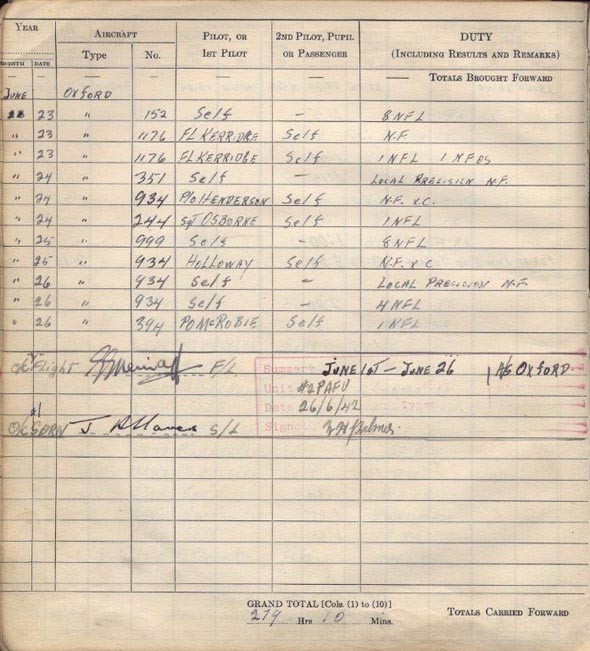 YEAR AIRCRAFT PILOT, OR 1ST PILOT 2ND PILOT, PUPIL OR PASSENGER DUTY (INCLUDING RESULTS AND REMARKS)
MONTH DATE Type No.
— — — — — — — TOTALS BROUGHT FORWARD
JUNE OXFORD
23 " 152 Self — 8 NFL
" 23 " 1176 FL KERRIDGE Self N.F.
" 23 " 1176 FL KERRIDGE Self 1 NFL 1 NFDS
" 24 " 351 Self — LOCAL PRECISION N.F.
" 24 " 934 P/O HENDERSON Self N.F. X.C.
" 24 " 244 Sgt OSBORNE Self 1 NFL
" 25 " 999 Self — 8 NFL
" 25 " 934 HOLLOWAY Self N.F. X C
" 26 " 934 Self — LOCAL PRECISION N.F.
" 26 " 934 Self — 4 NFL
" 26 " 394 PO McROBIE Self 1 NFL
Flight F/L Summary JUNE 1ST — JUNE 26 1 A/c OXFORD
Unit #2 PAFU
#1 Date 26/6/42 Types
O/C SQRN J. S/L Signed Palmer.
GRAND TOTAL [Cols. (1) to (10)]
279 Hrs 10 Mins. TOTALS CARRIED FORWARD